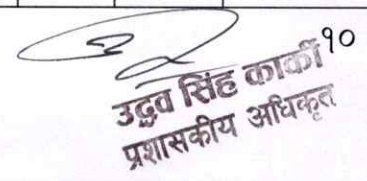 १०
उद्धव सिंह कार्की
प्रशासकीय अधिकृत